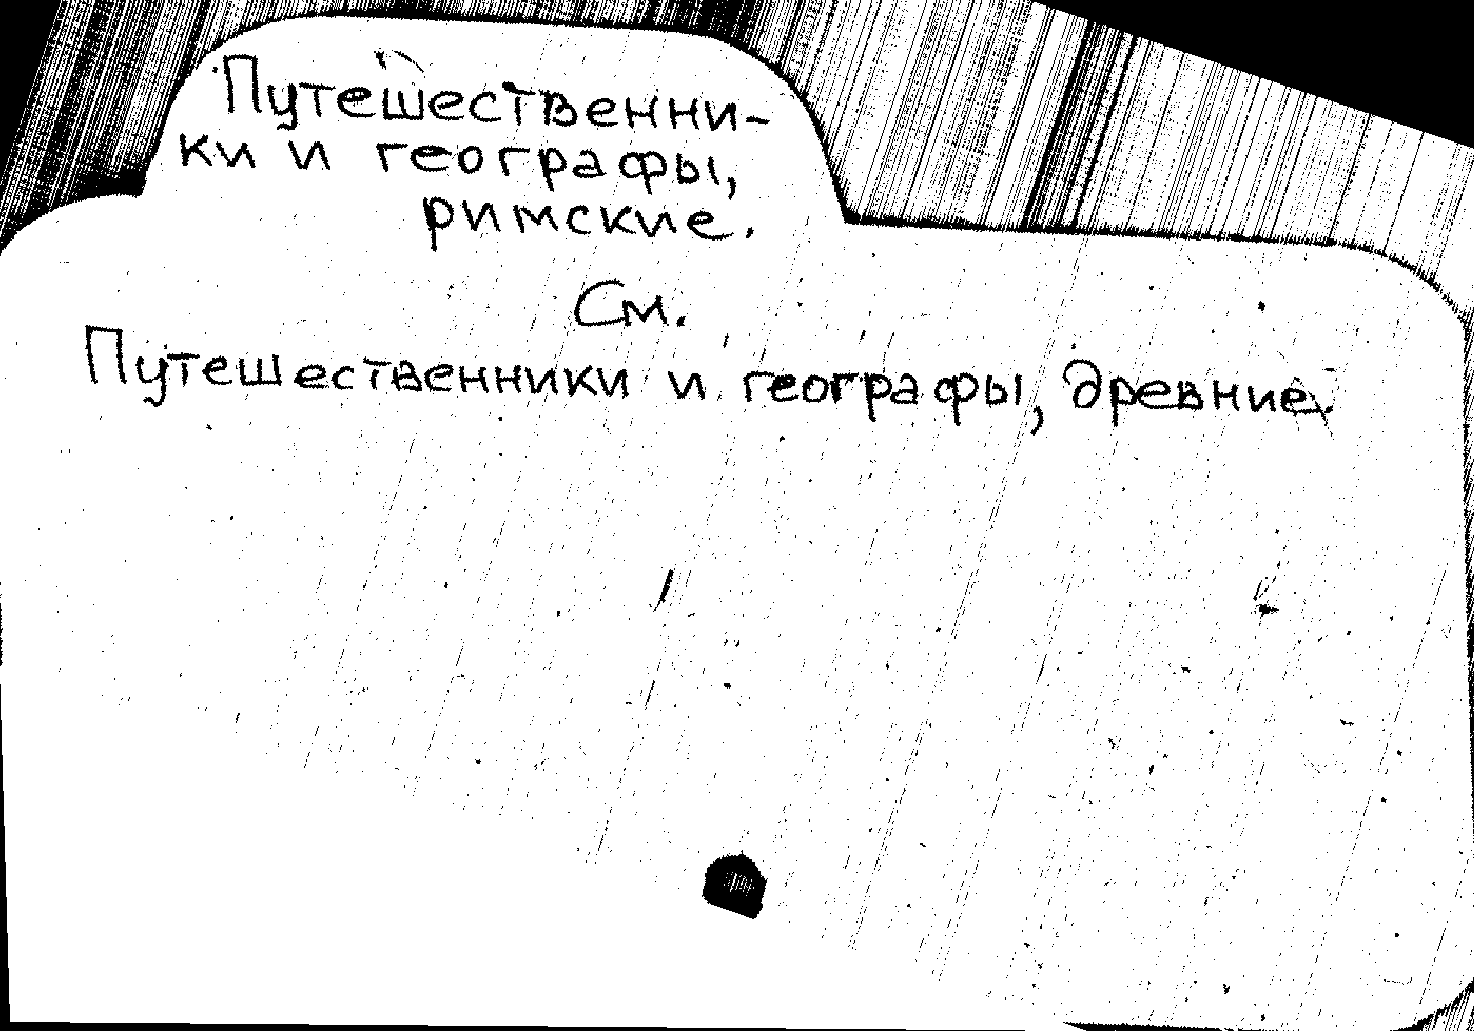 Путешественни-
ки и географы,
римские.
См.
Путешественники и географы, древние.